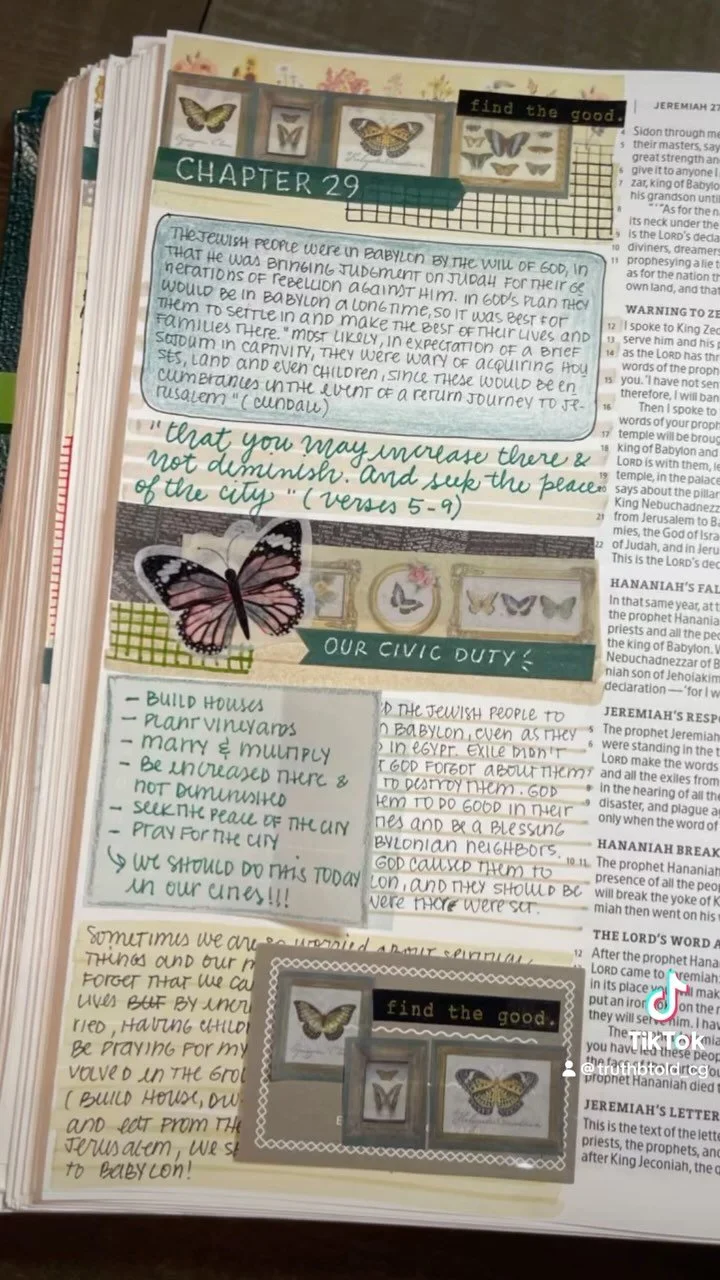 find the good.
CHAPTER 29
THE JEWISH PEOPLE WERE IN BABYLON BY THE WILL OF GOD, IN
THAT HE WAS BRINGING JUDGMENT ON JUDAH FOR THEIR GE
NERATIONS OF REBELLION AGAINST HIM. IN GOD'S PLAN THEY
WOULD BE IN BABYLON A LONG TIME, SO IT WAS BEST FOR
THEM TO SETTLE IN AND MAKE THE BEST OF THEIR LIVES AND
FAMILIES THERE. "MOST LIKELY, IN EXPECTATION OF A BRIEF
SOJOURN IN CAPTIVITY, THEY WERE WARY OF ACQUIRING HOU
SES, LAND AND EVEN CHILDREN, SINCE THESE WOULD BE EN
CUMBRANCES IN THE EVENT OF A RETURN JOURNEY TO JE-
RUSALEM" (CUNDALL)
"that you may increase there &
not diminish. And seek the peace
of the city" (verses 5-9)
OUR CIVIC DUTY
- BUILD HOUSES
- PLANT VINEYARDS
- MARRY & MULTIPLY
- BE INCREASED THERE &
NOT DIMINISHED
- SEEK THE PEACE OF THE CITY
- PRAY FOR THE CITY
WE SHOULD DO THIS TODAY
IN OUR CITIES!!!
D THE JEWISH PEOPLE TO
N BABYLON, EVEN AS THEY
D IN EGYPT. EXILE DIDN'T
T GOD FORGOT ABOUT THEM
TO DESTROY THEM. GOD
HEM TO DO GOOD IN THEIR
TIES AND BE A BLESSING
BYLONIAN NEIGHBORS.
GOD CAUSED THEM TO
LON, AND THEY SHOULD BE
WERE THERE WERE SET.
SOMETIMES WE ARE SO WORRIED ABOUT SPIRITUAL
THINGS AND OUR
FORGET THAT WE CA
LIVES BUT BY INCR
RIED, HAVING CHILD
BE PRAYING FOR MY
VOLVED IN THE GRO
(BUILD HOUSE, DW
AND EAT FROM THE
JERUSALEM, WE S
TO BABYLON!
find the good.
JEREMIAH 27
Sidon through me
their masters, say
great strength and
give it to anyone I
zar, king of Babylo
his grandson until
"'"As for the n
its neck under the
is the LORD's decla
diviners, dreamers
prophesying a lie t
as for the nation th
own land, and that
WARNING TO ZE
12 I spoke to King Zed
13 serve him and his p
14 as the LORD has thr
words of the proph
15 you. 'I have not sen
therefore, I will ban
16 Then I spoke to
words of your proph
17 temple will be broug
18 king of Babylon and
LORD is with them, le
19 temple, in the palace
20 says about the pillar
King Nebuchadnezz
21 from Jerusalem to B
mies, the God of Isra
22 of Judah, and in Jeru
This is the LORD's dec
HANANIAH'S FAL
In that same year, at t
the prophet Hanania
priests and all the peo
the king of Babylon. W
Nebuchadnezzar of B
niah son of Jehoiakim
declaration—'for I w
JEREMIAH'S RESP
5 The prophet Jeremiah
6 were standing in the t
LORD make the words
and all the exiles from
in the hearing of all the
disaster, and plague a
9 only when the word of
HANANIAH BREAK
10,11 The prophet Hananiah
presence of all the peop
will break the yoke of N
miah then went on his w
THE LORD'S WORD A
12 After the prophet Hana
LORD came to Jeremiah:
in its place you will mak
put an iron yoke on the n
they will serve him. I ha
you have led these peop
the face of
prophet Hananiah died t
JEREMIAH'S LETTER
This is the text of the lette
priests, the prophets, and
after King Jeconiah, the q
TikTok
@truthbtold_cg